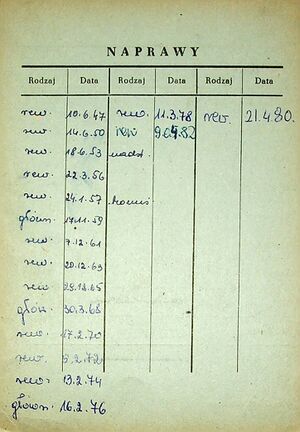 NAPRAWY
Rodzaj Data Rodzaj Data Rodzaj Data
rew. 10.6.47 rew. 11.3.78 rew. 21.4.80.
rew. 14.6.50 rew 9.04.82
rew. 18.6.53 nadzl.
rew. 22.3.56
rew. 24.1.57
główn. 17.11.59
rew. 7.12.61
rew. 20.12.63
rew.
główn. 30.3.68
rew. 17.2.70
rew. 5.2.72
rew. 13.2.74
główn. 16.2.76